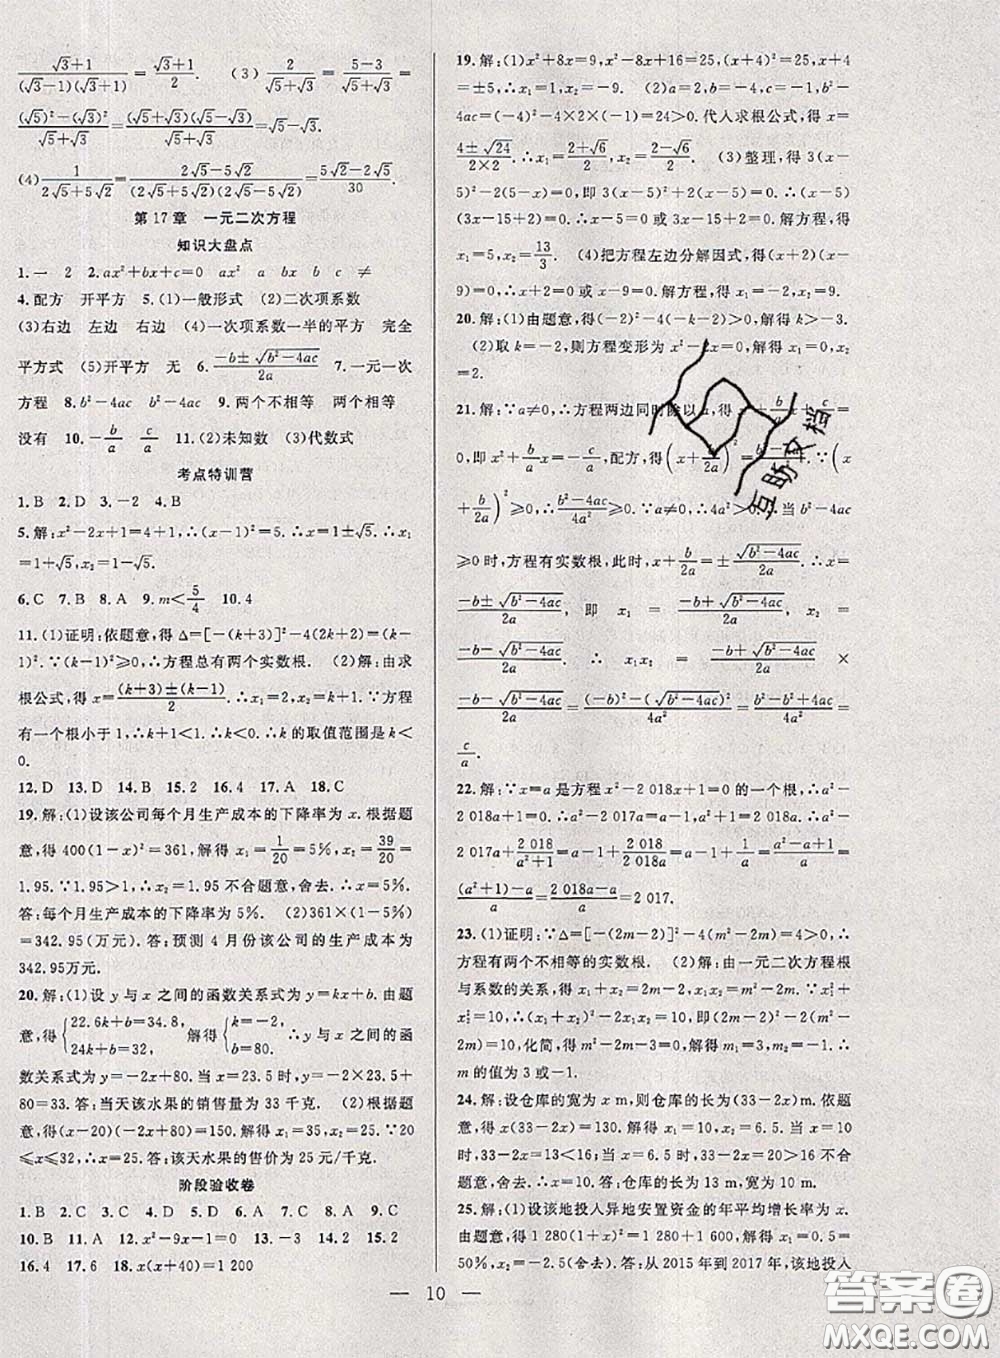 √3+1/(√3-1)(√3+1)=√3+1/2. (3)2/√5+√3=5-3/√5+√3=
(√5)²-(√3)²/√5+√3=(√5+√3)(√5-√3)/√5+√3=√5-√3.
(4)1/2√5+5√2=2√5-5√2/(2√5+5√2)(2√5-5√2)=5√2-2√5/30.
第17章 一元二次方程
知识大盘点
1.一 2 2.ax²+bx+c=0 ax² a bx b c ≠
4.配方 开平方 5.(1)一般形式 (2)二次项系数
(3)右边 左边 右边 (4)一次项系数一半的平方 完全
平方式 (5)开平方 无 6.-b±√b²-4ac/2a 7.一元一次
方程 8.b²-4ac b²-4ac 9.两个不相等 两个相等
没有 10.-b/a c/a 11.(2)未知数 (3)代数式
考点特训营
1.B 2.D 3.-2 4.B
5.解:x²-2x+1=4+1,∴(x-1)²=5,x-1=±√5,∴x₁
=1+√5,x₂=1-√5.
6.C 7.B 8.A 9.m<5/4 10.4
11.(1)证明:依题意,得Δ=[-(k+3)]²-4(2k+2)=(k-
1)².∵(k-1)²≥0,∴方程总有两个实数根. (2)解:由求
根公式,得x=(k+3)±(k-1)/2.∴x₁=2,x₂=k+1.∵方程
有一个根小于1,∴k+1<1.∴k<0.∴k的取值范围是k<
0.
12.D 13.D 14.B 15.2 16.4 17.A 18.C
19.解:(1)设该公司每个月生产成本的下降率为x.根据题
意,得400(1-x)²=361,解得x₁=1/20=5%,x₂=39/20=
1.95.∵1.95>1,∴x₂=1.95不合题意,舍去.∴x=5%.
答:每个月生产成本的下降率为5%. (2)361×(1-5%)
=342.95(万元).答:预测4月份该公司的生产成本为
342.95万元.
20.解:(1)设y与x之间的函数关系式为y=kx+b.由题
意,得{22.6k+b=34.8, 24k+b=32. 解得{k=-2, b=80. ∴y与x之间的函
数关系式为y=-2x+80.当x=23.5时,y=-2x+80=
-2×23.5+80=33.答:当天该水果的销售量为33千克. (2)根据题
意,得(x-20)(-2x+80)=150.解得x₁=35,x₂=25.∵20
≤x≤32,∴x=25.答:该天水果的售价为25元/千克.
阶段验收卷
1.B 2.C 3.C 4.D 5.D 6.B 7.A 8.A 9.C
10.B 11.A 12.x²-9x-1=0 13.-3 14.2 15.2
16.4 17.6 18.x(x+40)=1 200
19.解:(1)x²+8x=9,x²+8x+16=25,(x+4)²=25,x+4
=±5,∴x₁=1,x₂=-9. (2)a=2,b=-4,c=-1,b²-
4ac=(-4)²-4×2×(-1)=24>0.代入求根公式,得x=
4±√24/2×2,∴x₁=2+√6/2,x₂=2-√6/2. (3)整理,得3(x-
5)²-2(x-5)=0,即3(x-5)²-2(x-5)=0.∴(x-5)
(3x-15-2)=0,
x₁=5,x₂=13/3. (4)把方程左边分解因式,得(x-
9)=0.解方程,得x₂=9.
20.解:(1)由题意,得(-2)²-4(-k-2)>0,解得k>-3.
(2)取k=-2,则方程变形为x²-2x=0,解得x₁=0,x₂
=2.
21.解:∵a≠0,∴方程两边同时除以a,得x²+b/a x+c/a=
0,即x²+b/a x=-c/a,配方,得(x+b/2a)²=b²-4ac/4a².∵(x
+b/2a)²≥0,∴b²-4ac/4a²≥0.∵a≠0,∴4a²>0.当b²-4ac
≥0时,方程有实数根,此时,x+b/2a=±√b²-4ac/2a,x=
-b±√b²-4ac/2a, 即 x₁=-b+√b²-4ac/2a, x₂=
-b-√b²-4ac/2a. ∴ x₁x₂=-b+√b²-4ac/2a ×
-b-√b²-4ac/2a=(-b)²-(√b²-4ac)²/4a²=b²-b²+4ac/4a²=
c/a.
22.解:∵x=a是方程x²-2 018x+1=0的一个根,∴a²-
2 018a+1=0,∴a²-2 017a=a-1,a²+1=2 018a.∴a²-
2 017a+2 018/a²+1=a-1+2 018/2 018a=a-1+1/a=a²-a+1/a=
(a²+1)-a/a=2 018a-a/a=2 017.
23.(1)证明:∵Δ=[-(2m-2)]²-4(m²-2m)=4>0,∴
方程有两个不相等的实数根. (2)解:由一元二次方程根
与系数的关系,得x₁+x₂=2m-2,x₁x₂=m²-2m.
∴(2m-2)²-2(m²-
2m)=10,化简,得m²-2m-3=0,解得m₁=3,m₂=-1.∴
m的值为3或-1.
24.解:设仓库的宽为x m,则仓库的长为(33-2x)m.依题
意,得x(33-2x)=130.解得x₁=10,x₂=6.5.当x=10
时,33-2x=13;当x=6.5时,33-2x=20>15,不合
题意,舍去.∴x=10.答:仓库的长为13 m,宽为10 m.
25.解:(1)设该地投入异地安置资金的年平均增长率为x.
由题意,得1 280(1+x)²=1 280+1 600,解得x₁=0.5=
50%,x₂=-2.5(舍去).答:从2015年到2017年,该地投入
— 10 —
互助文档
答案卷
MXQE.COM